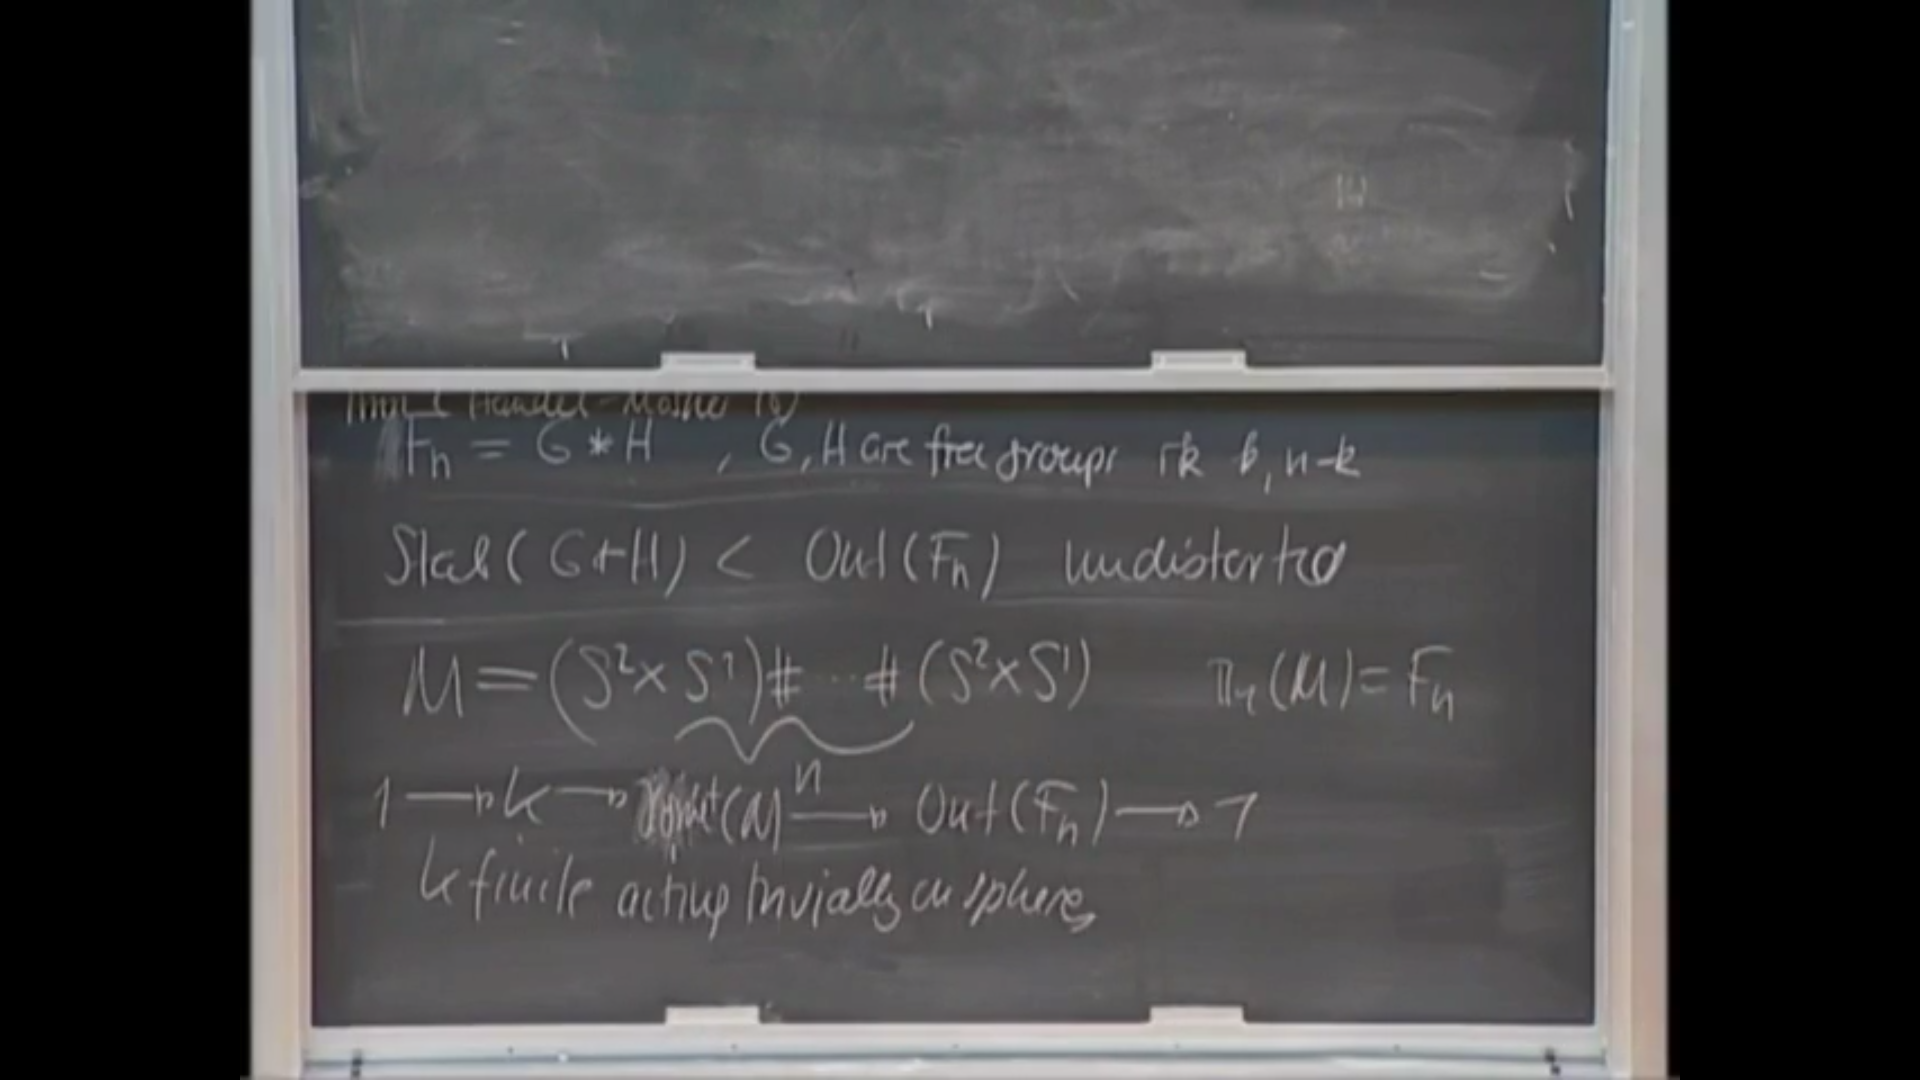 (Handel-Mosher
F_n = G * H , G, H are free groups rk k, n-k
Stab(G*H) < Out(F_n) undistorted
M = (S²×S¹)# ... #(S²×S¹) π_1(M) = F_n
n
1 → K → (M) → Out(F_n) → 1
K finite acting trivially on spheres